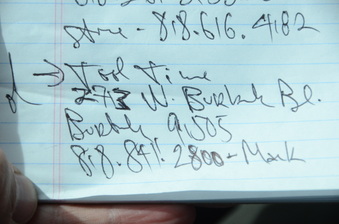 store - 818.616.4182
→ Tool Time
273 W. Burbank Bl.
Burbk 91505
818.841.2800 - Mark